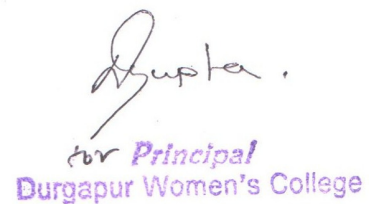 DGupta.
for Principal
Durgapur Women's College